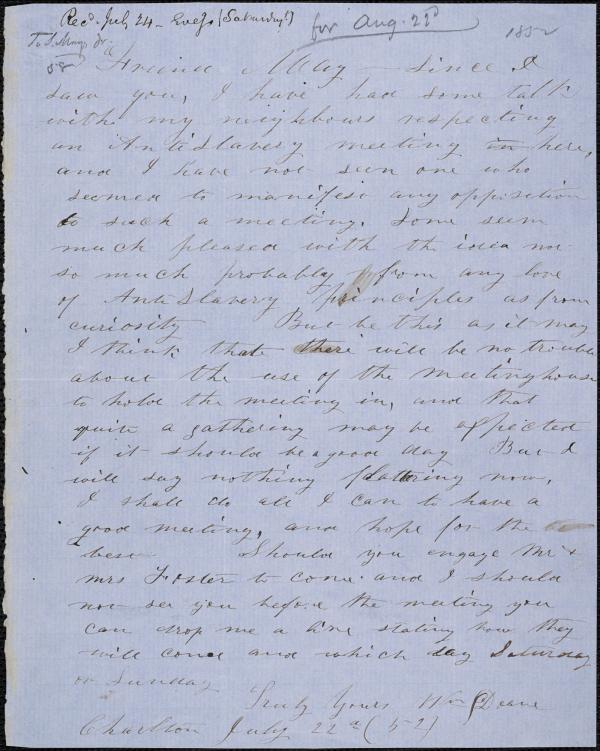 Rec'd. July 24 - Eve'g (Saturday)
for Aug. 22d
1852
To S. May Jr.
Friend May - Since I
saw you, I have had some talk
with my neighbours respecting
an AntiSlavery meeting in here,
and I have not seen one who
seemed to manifest any opposition
to such a meeting. Some seem
much pleased with the idea not
so much probably from any love
of AntiSlavery principles as from
curiosity But be this as it may
I think that there will be no trouble
about the use of the meetinghouse
to hold the meeting in, and that
quite a gathering may be expected
if it should be a good day But I
will say nothing flattering now,
I shall do all I can to have a
good meeting, and hope for the
best Should you engage Mr &
Mrs Foster to come and I should
not see you before the meeting you
can drop me a line stating how they
will come and which day Saturday
or Sunday
Truly Yours Wm Deane
Charlton July 22d (52)